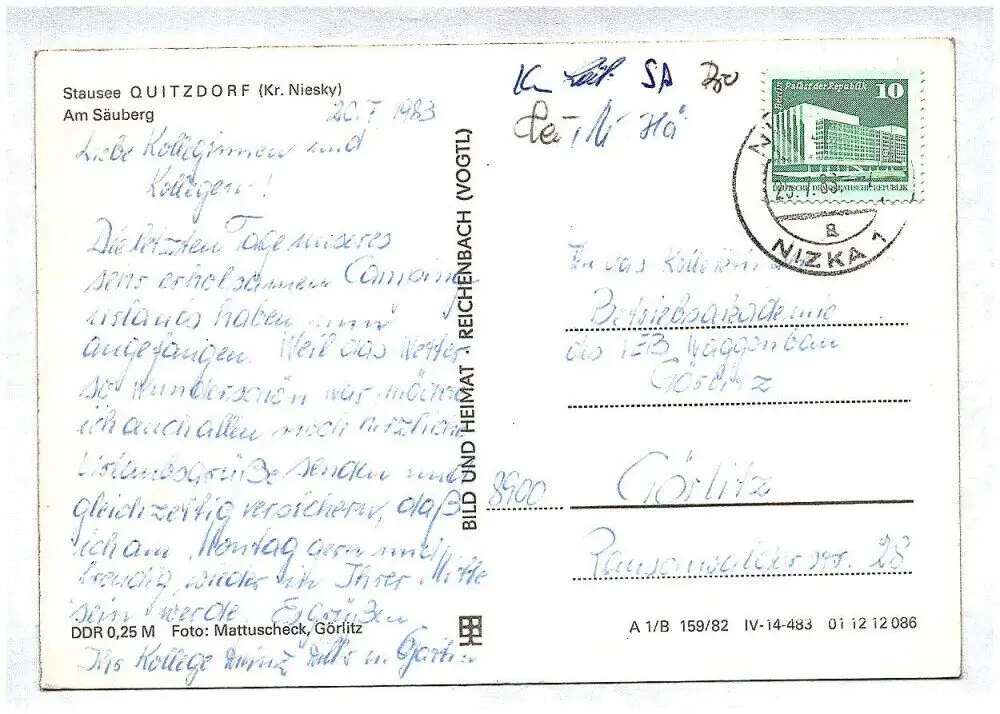 Stausee QUITZDORF (Kr. Niesky)
Am Säuberg
20.7.1983
Liebe Kolleginnen und
Kollegen!
Die letzten Tage unseres
sehr erholsamen Camping
urlaubs haben nun
angefangen. Weil das Wetter
so wunderschön war möchte
ich auch allen noch herzliche
Urlaubsgrüße senden und
gleichzeitig versichern, daß
ich am Montag gern und
freudig wieder in Ihrer Mitte
sein werde. Es grüßen
Ihr Kollege Heinz u. Gattin
DDR 0,25 M Foto: Mattuscheck, Görlitz
BILD UND HEIMAT · REICHENBACH (VOGTL)
SA
Hä
Berlin Palast der Republik 10
DEUTSCHE DEMOKRATISCHE REPUBLIK
a
NIZKA 1
An das Kollektiv der
Betriebsakademie
des VEB Waggonbau
Görlitz
8900 Görlitz
Rauschwalder str. 28
A 1/B 159/82 IV-14-483 01 12 12 086